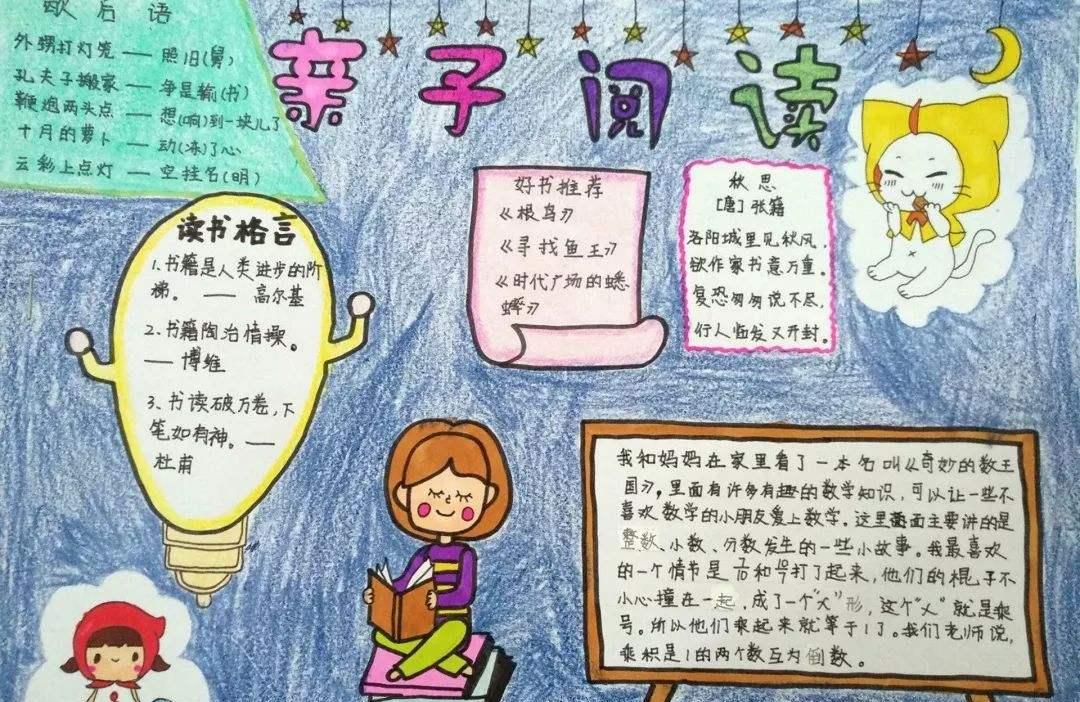 歇后语
外甥打灯笼 — 照旧(舅)
孔夫子搬家 — 争是输(书)
鞭炮两头点 — 想(响)到一块儿了
十月的萝卜 — 动(冻)了心
云彩上点灯 — 空挂名(明)
亲子阅读
读书格言
1、书籍是人类进步的阶
梯。 — 高尔基
2、书籍陶冶情操。
— 博维
3、书读破万卷,下
笔如有神。—
杜甫
好书推荐
《根鸟》
《寻找鱼王》
《时代广场的蟋
蟀》
秋思
[唐]张籍
洛阳城里见秋风,
欲作家书意万重。
复恐匆匆说不尽,
行人临发又开封。
我和妈妈在家里看了一本名叫《奇妙的数王
国》,里面有许多有趣的数学知识,可以让一些不
喜欢数学的小朋友爱上数学。这里面主要讲的是
整数、小数、分数发生的一些小故事。我最喜欢
的一个情节是和打了起来,他们的棍子不
小心撞在一起,成了一个"乂"形,这个"乂"就是乘
号。所以他们乘起来就等于1了。我们老师说,
乘积是1的两个数互为倒数。